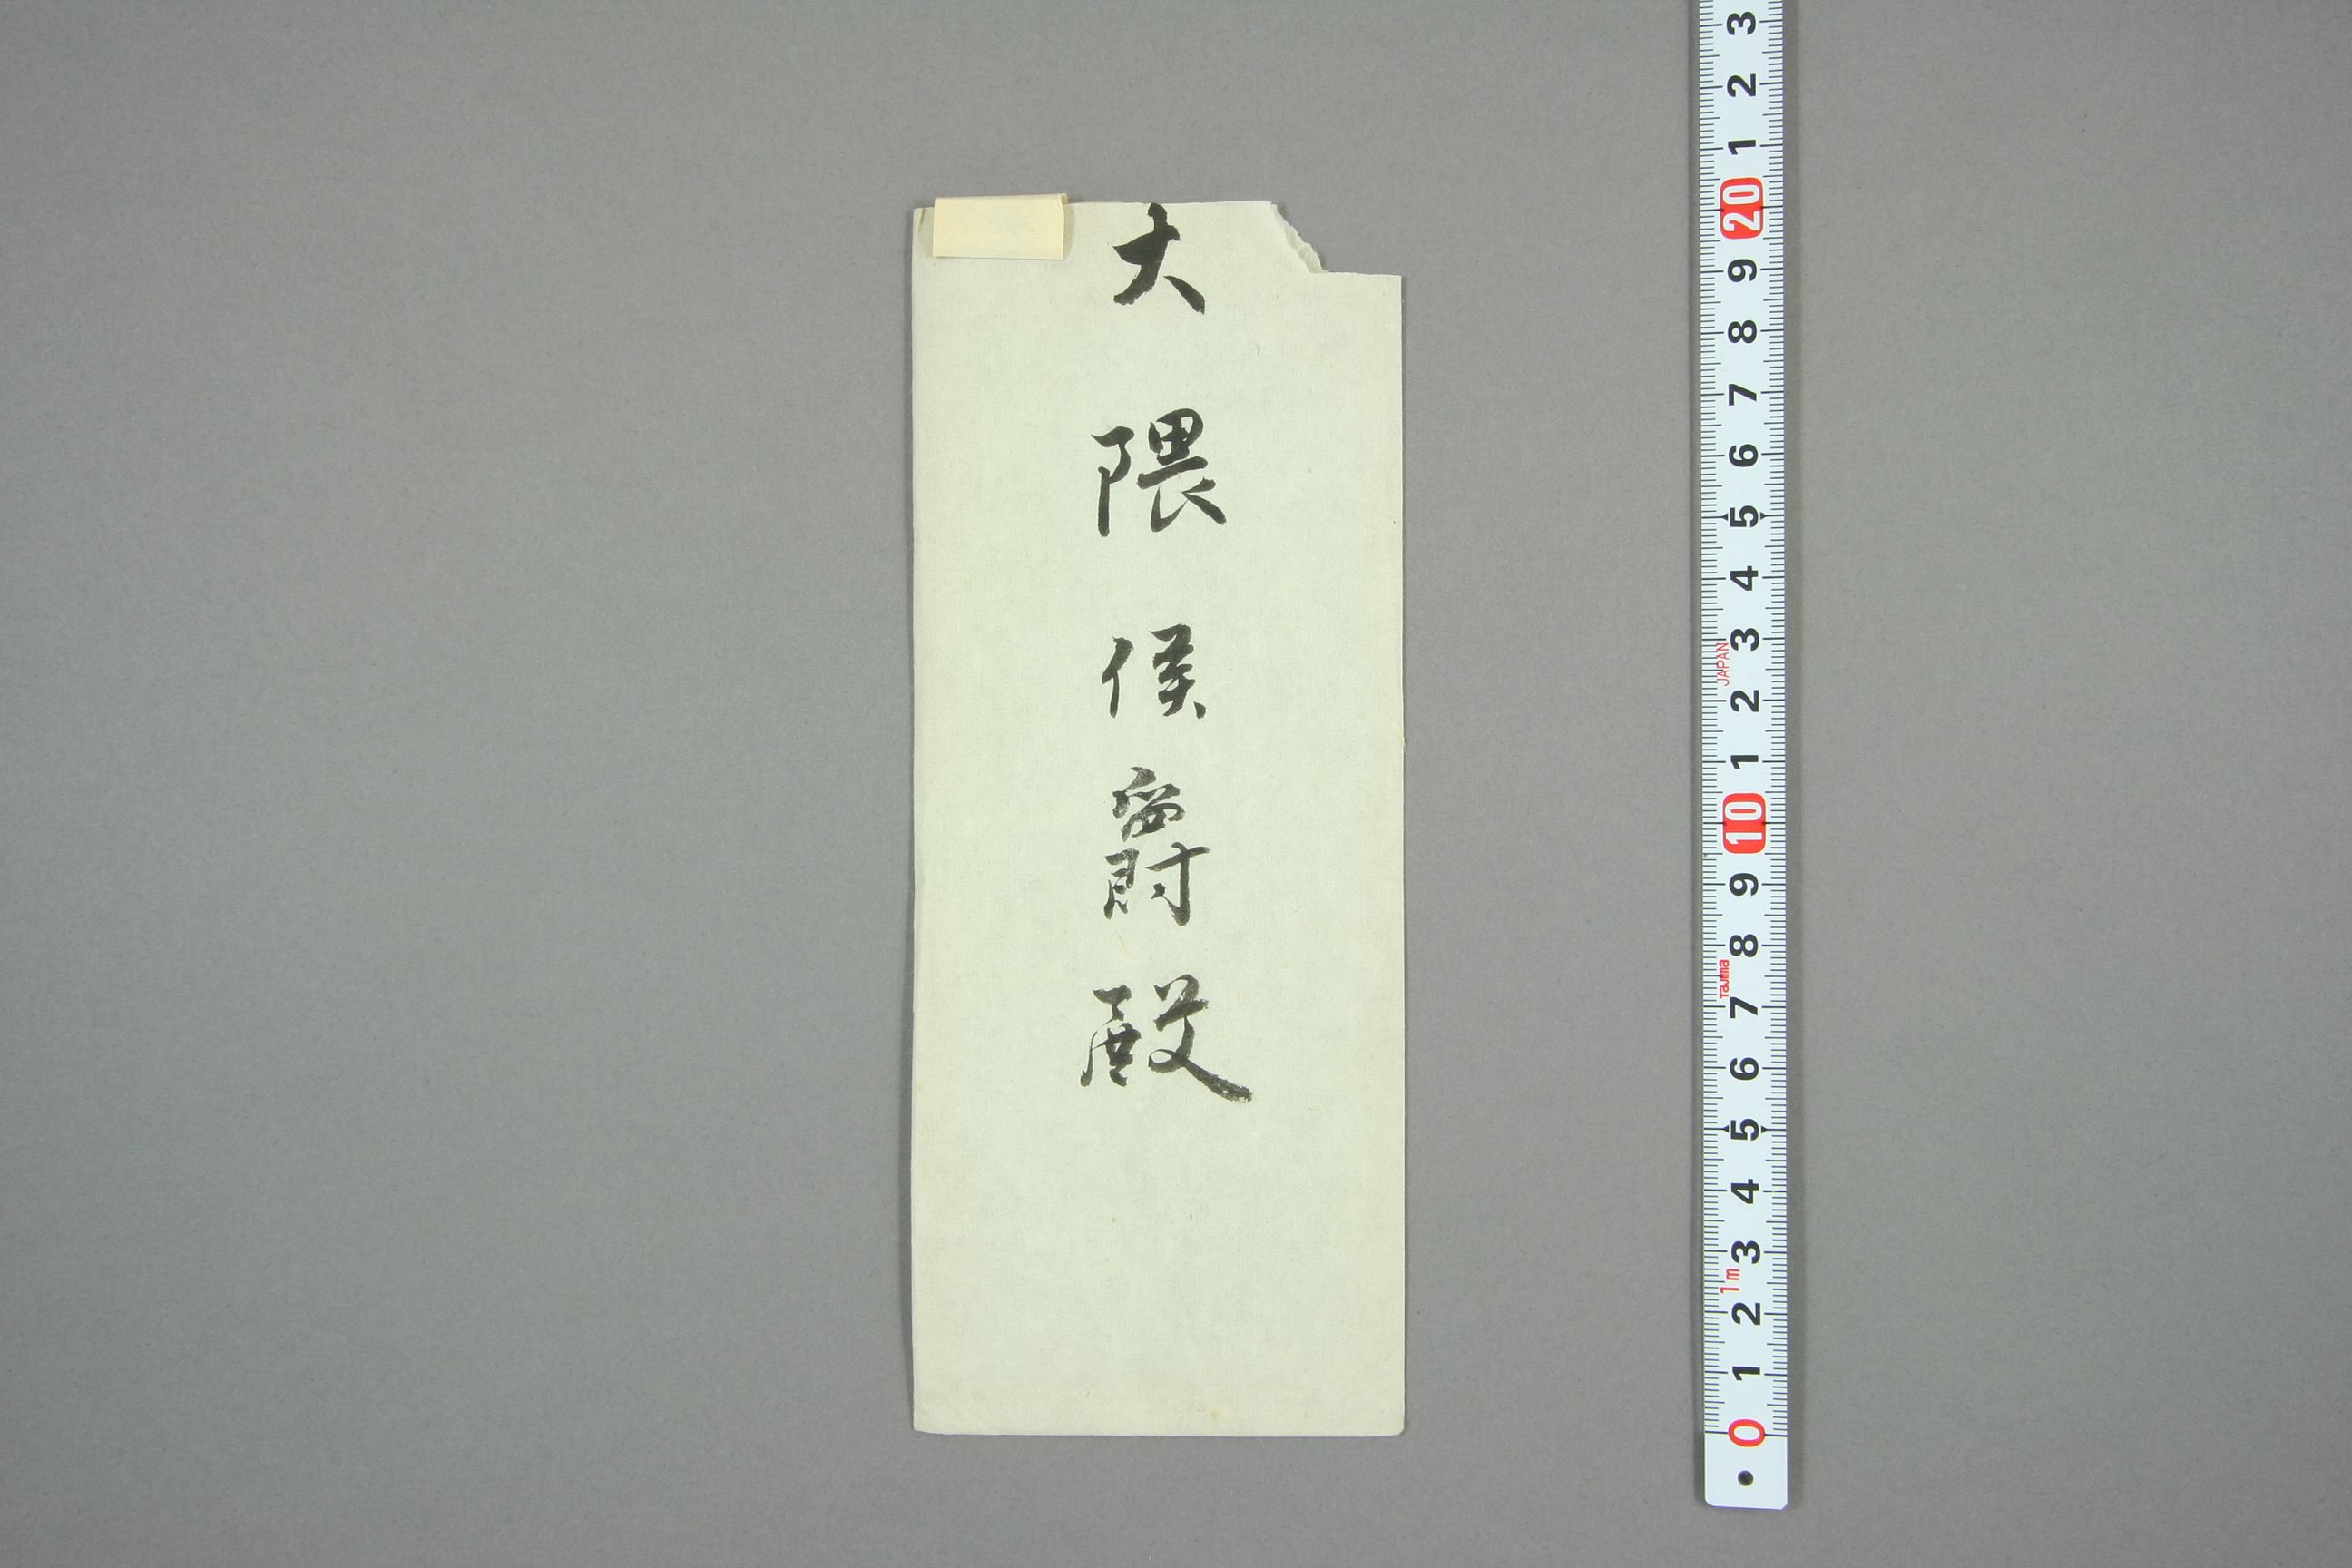 大隈侯爵殿
3
2
1
20
9
8
7
6
5
4
3
JAPAN
2
1
10
9
8
Tajima
7
6
5
4
3
1m
2
1
0